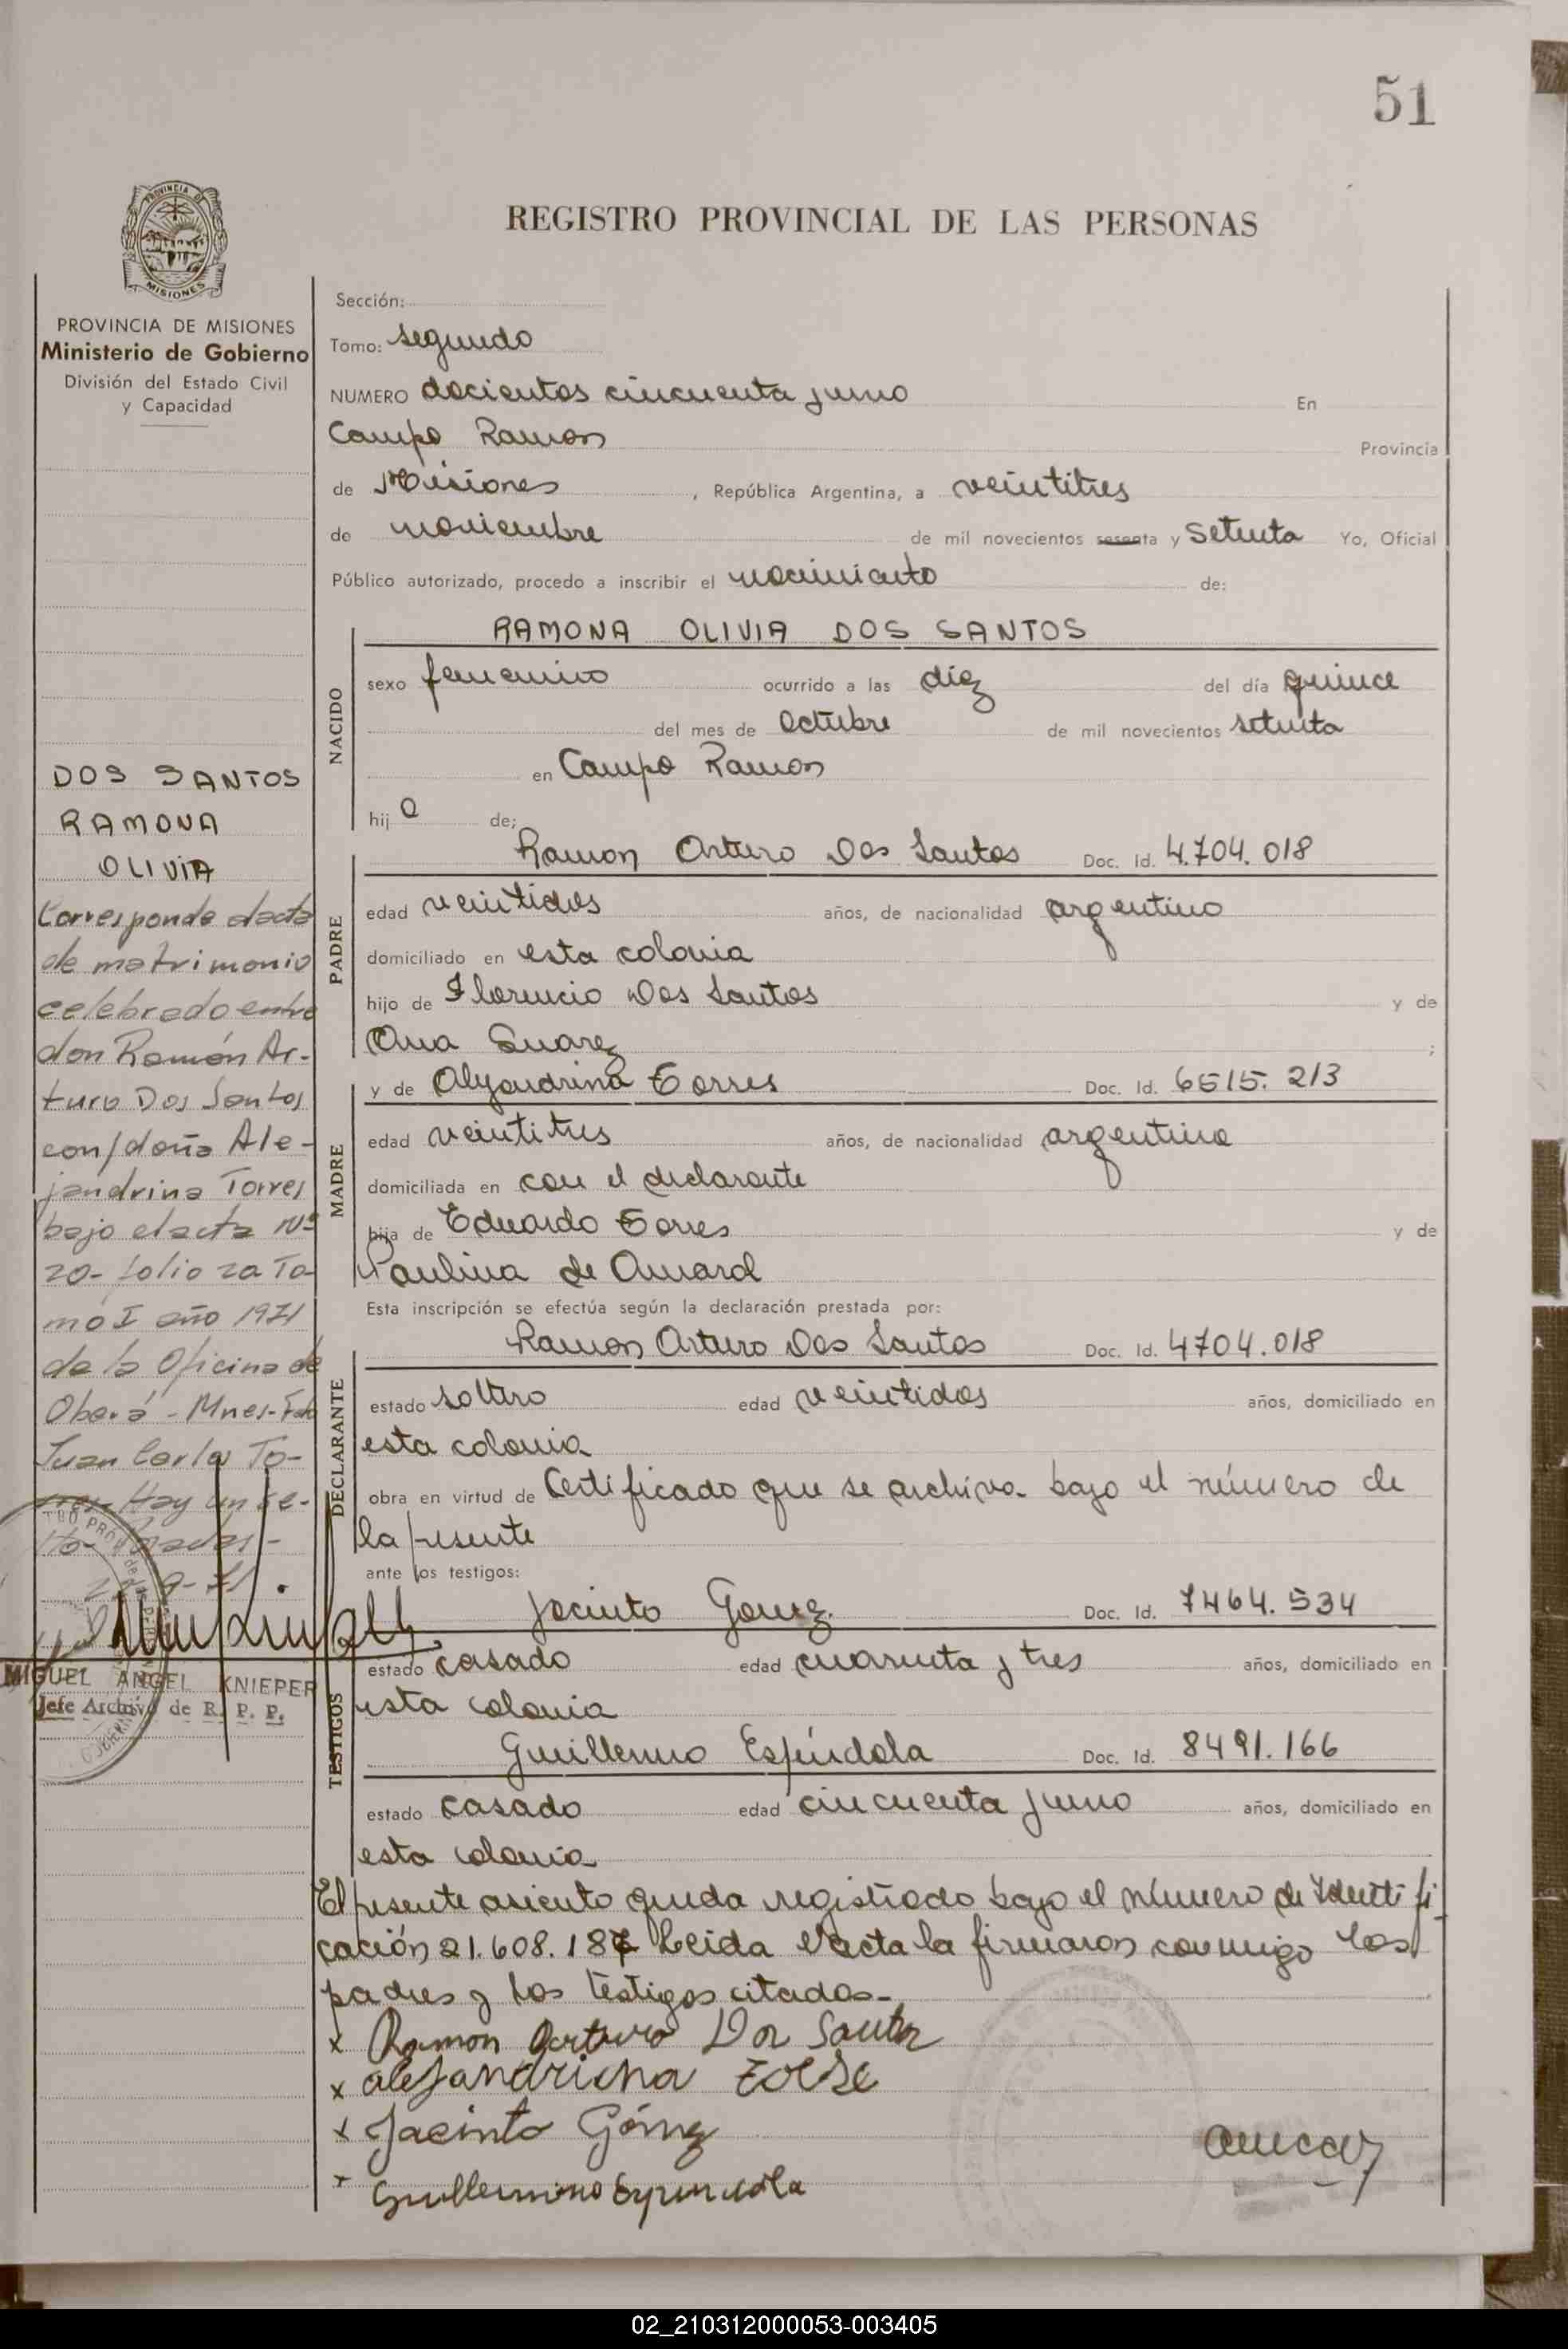 51
REGISTRO PROVINCIAL DE LAS PERSONAS
MISIONES
PROVINCIA DE MISIONES
Ministerio de Gobierno
División del Estado Civil
y Capacidad
DOS SANTOS
RAMONA
OLIVIA
Corresponde al acta
de matrimonio
celebrado entre
don Ramón Ar-
turo Dos Santos
con/doña Ale-
jandrina Torres
bajo el acta Nº
20- folio 20 To-
mo I año 1971
de la Oficina de
Oberá - Mnes- Fdo
Juan Carlos To-
Hay un se-
9-71
MIGUEL ANGEL KNIEPER
Jefe Archivo de R. P. P.
Sección:
Tomo: segundo
NUMERO docientos cincuenta y uno En
Campo Ramon Provincia
de Misiones, República Argentina, a veintitres
de noviembre de mil novecientos sesenta y Setenta Yo, Oficial
Público autorizado, procedo a inscribir el nacimiento de:
NACIDO
RAMONA OLIVIA DOS SANTOS
sexo femenino ocurrido a las diez del día quince
del mes de Octubre de mil novecientos setenta
en Campo Ramon
hija de;
PADRE
Ramon Arturo Dos Santos Doc. Id. 4.704.018
edad veintidos años, de nacionalidad argentino
domiciliado en esta colonia
hijo de Florencio Dos Santos y de
Ana Suarez ;
MADRE
y de Alejandrina Torres Doc. Id. 6515.213
edad veintitres años, de nacionalidad argentina
domiciliada en con el declarante
hija de Eduardo Torres y de
Paulina de Amaral
Esta inscripción se efectúa según la declaración prestada por:
DECLARANTE
Ramon Arturo Dos Santos Doc. Id. 4704.018
estado soltero edad veintidos años, domiciliado en
esta colonia
obra en virtud de Certificado que se archiva bajo el número de
la presente
ante los testigos:
TESTIGOS
Jacinto Gomez Doc. Id. 7464.534
estado casado edad cuarenta y tres años, domiciliado en
esta colonia
Guillermo Espíndola Doc. Id. 8491.166
estado casado edad cincuenta y uno años, domiciliado en
esta colonia
El presente asiento queda registrado bajo el número de Identifi-
cación 21.608.187 Leida el acta la firmaron conmigo los
padres y los testigos citados-
x Ramon Arturo Dos Santos
x alejandrina
x Jacinto Gómez
x Guillermo Espindola
02_210312000053-003405